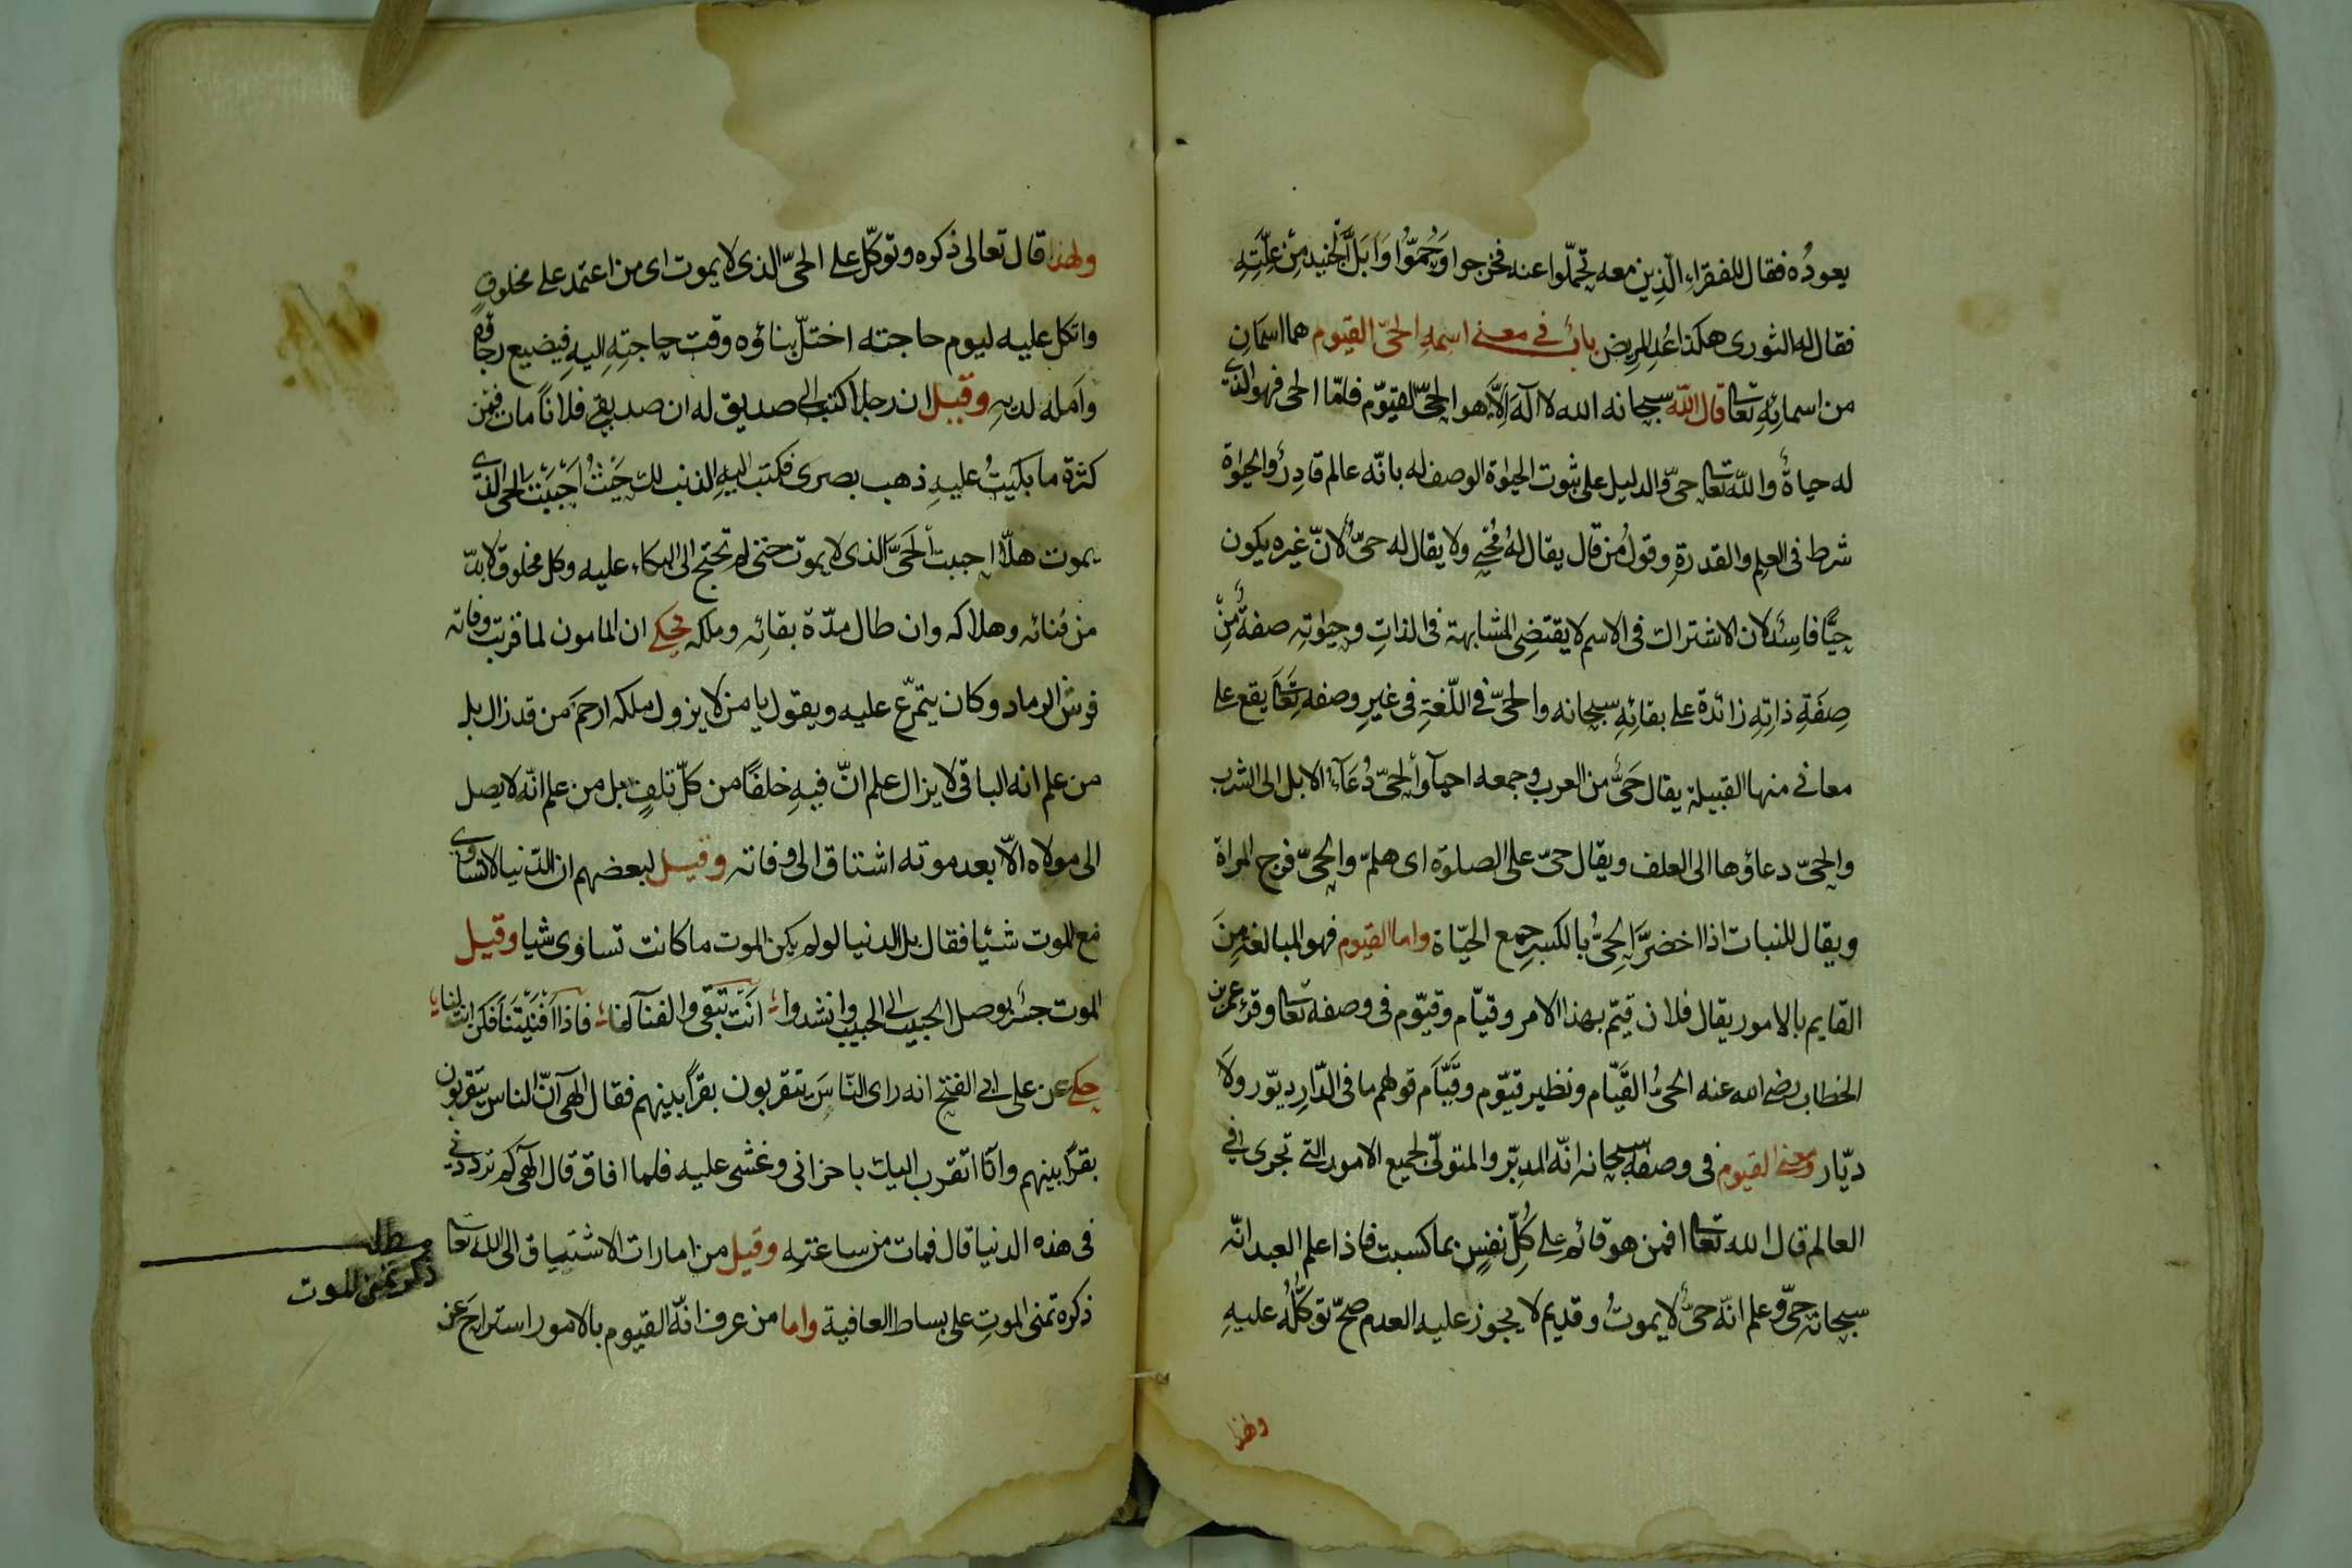 يعودُه فقال للفقراء الّذين معه تحمّلوا عنه فخرجوا وَحُمّوُا وَاَبَلَّ الجنيد مِنْ عِلَّتِهِ
فقال له الثورى هكذا عُدِ المريض بابٌ فى معنى اسمهِ الحىّ القيوم هما اسمان
من اسمائِهِ تعالى قال اللّه سبحانه الله لا اله اِلاَّ هو الحىّ القيّوم فامّا الحى فهو الذى
له حياةٌ واللّه تعالى حىّ والدليل على ثبوت الحيوة الوصف له بانّه عالم قادِرٌ والحيوة
شرط فى العلم والقدرة وقولُ من قال يقال لهُ مُحْيِى ولا يقال له حىٌّ لانّ غيره يكون
حيًّا فاسِدٌ لان الاشتراك فى الاسم لا يقتضِى المشابهة فى الذاتِ وحيوته صفةٌ مِنْ
صِفَةِ ذاتِهِ زائدة على بقائِهِ سبحانه والحىّ فى اللّغة فى غيرِ وصفه تعالى يقع على
معانى منها القبيلة يقال حَىٌّ من العرب وجمعه احياً والحىّ دُعَآءُ الابل الى الشرب
والحىّ دعاؤها الى العلف ويقال حىّ على الصلوة اى هلمّ والحىّ فرج المراة
ويقال للنبات اذا اخضرَّ الحِىُّ بالكسرِ جمع الحيّاة واما القيوم فهو المبالغة مِنَ
القايم بالامور يقال فلان قيّم بهذا الامر وقيّام وقيّوم فى وصفه تعالى وقرء عمر بن
الخطاب رضى الله عنه الحىُّ القَيّام ونظير قيّوم وقَيَّام قولهم ما فى الدّار ديّور ولَا
ديّار ومعنى القيوم فى وصفهِ سبحانه انّه المدبّر والمتولّى لجميع الامور التى تجرى فى
العالم قال الله تعالى افمن هو قائم على كُلِّ نفسٍ بما كسبت فاذا علم العبد انّه
سبحانه حىٌّ وعلم انّه حىٌّ لا يموتُ وقديم لا يجوز عليه العدم صحّ توكّلُهُ عليهِ
ولهذا
ولهذا قال تعالى ذكره وتوكّل على الحىّ الذى لا يموت اى من اعتمد على مخلوقٍ
واتكل عليه ليوم حاجته اختلّ بناؤه وقت حاجتِهِ اليهِ فيضيع رجاؤه
وَاَمله لديهِ وقيل ان رجلا كتب الى صديق له ان صديقى فلاناً مات فمن
كثرة ما بكيتُ عليهِ ذهب بصرى فكتب اليهِ الذنب لك حَيْثُ اَحْبَبْتَ الحى الذى
يموت هلّا احببت الحَىَّ الذى لا يموت حتى لم تحتج الى البكاء عليه وكل مخلوق لا بدّ
من فنائه وهلاكه وان طال مدّة بقائه وملكه حكى ان المامون لما قربت وفاته
فرش الرماد وكان يتمرّغ عليه ويقول يا من لا يزول ملكه ارحَم من قد زال بل
من علم انه الباقى لا يزال علم انّ فيهِ خلفًا من كلّ تلفٍ بل من علم انّه لا يصل
الى مولاه الّا بعد موته اشتاق الى وفاته وقيل لبعضهم ان الدّنيا لا تساوى
مع الموت شئيا فقال بل الدنيا لو لم يكن الموت ما كانت تساوى شيا وقيل
الموت جسْر يوصل الحبيب الى الحبيب وانشدوا اَنْتَ تبقى والفنآ لنا فاذا اَفْنَيْتَنَا فَكُن انت لنا
حكى عن على ابى الفتح انه راى النّاسَ يتقربون بقرًا بينهم فقال الهى انّ الناس يتقربون
بقرًا بينهم وانّا اتقرب اليك باحزانى وغشى عليه فلما افاق قال الهى كم ترددنى
فى هذه الدنيا قال فمات من ساعته وقيل من امارات الاشتياق الى اللّه تعالى
ذكره تمنى الموتِ على بساط العافية واما من عرف انّه القيوم بالامور استراحَ عن
مطلب
ذكر تمنى الموت